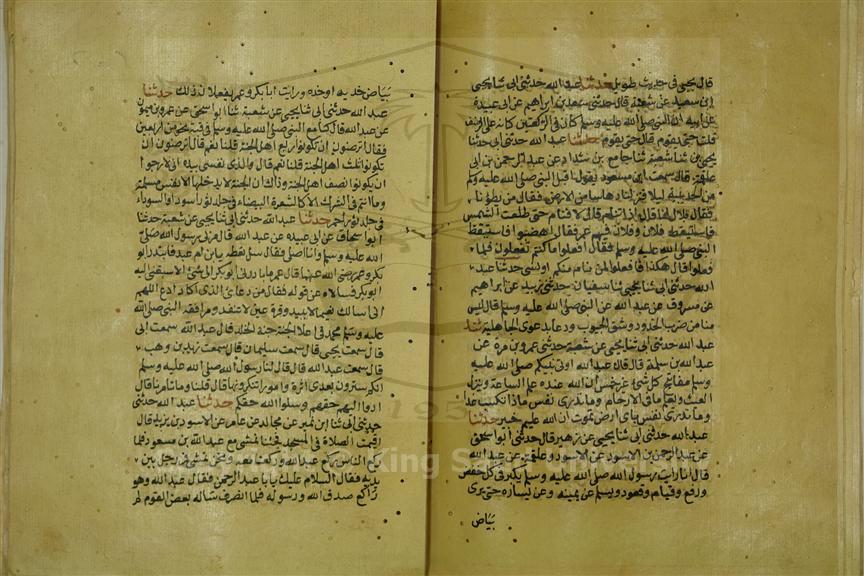 قال يحيى في حديث طويل حدثنا عبد الله حدثني ابي ثنا يحيى
ابن سعيد عن شعبة قال حدثني سعد بن ابراهيم عن ابي عبيدة
عن ابيه ان النبي صلى الله عليه وسلم كان في الركعتين كانه على الرضف
قلت حتى يقوم قال حتى يقوم حدثنا عبد الله حدثني ابي حدثنا
يحيى بن ثنا شعبة ثنا جامع بن شداد عن عبد الرحمن بن ابي
علقمة قال سمعت ابن مسعود يقول اقبل النبي صلى الله عليه وسلم
من الحديبية ليلا فنزلنا دهاسا من الارض فقال من يكلؤنا
فقال بلال انا قال اذا تنام قال لا فنام حتى طلعت الشمس
فاستيقظ فلان وفلان فيهم عمر فقال اهضبوا فاستيقظ
النبي صلى الله عليه وسلم فقال افعلوا ما كنتم تفعلون فلما
فعلوا قال هكذا فافعلوا لمن نام منكم او نسي حدثنا عبد
الله حدثني ابي ثنا يحيى ثنا سفيان حدثني زبيد عن ابراهيم
عن مسروق عن عبد الله عن النبي صلى الله عليه وسلم قال ليس
منا من ضرب الخدود وشق الجيوب ودعا بدعوى الجاهلية ثنا
عبد الله حدثني ابي ثنا يحيى عن شعبة حدثني عمرو بن مرة عن
عبد الله بن سلمة قال قال عبد الله اوتي نبيكم صلى الله عليه
وسلم مفاتيح كل شئ غير خمس ان الله عنده علم الساعة وينزل
الغيث ويعلم ما في الارحام وما تدري نفس ماذا تكسب غدا
وما تدري نفس باي ارض تموت ان الله عليم خبير حدثنا
عبد الله حدثني ابي ثنا يحيى عن زهير قال حدثني ابو اسحق
عن عبد الرحمن بن الاسود عن الاسود وعلقمة عن عبد الله
قال انا رايت رسول الله صلى الله عليه وسلم يكبر في كل خفض
ورفع وقيام وقعود ويسلم عن يمينه وعن يساره حتى يرى
بياض
بياض خديه او خده ورايت ابا بكر وعمر يفعلان ذلك حدثنا
عبد الله حدثني ابي ثنا يحيى عن شعبة ثنا ابو اسحق عن عمرو بن ميمون
عن عبد الله قال كنا مع النبي صلى الله عليه وسلم في قبة نحو من اربعين
فقال اترضون ان تكونوا ربع اهل الجنة قلنا نعم قال اترضون ان
تكونوا ثلث اهل الجنة قلنا نعم قال والذي نفسي بيده اني لارجوا
ان تكونوا نصف اهل الجنة وذاك ان الجنة لا يدخلها الا نفس مسلمة
وما انتم في الشرك الا كالشعرة البيضاء في جلد ثور اسود او السوداء
في جلد ثور احمر حدثنا عبد الله حدثني ابي ثنا يحيى عن شعبة حدثنا
ابو اسحاق عن ابي عبيدة عن عبد الله قال مر بي رسول الله صلى
الله عليه وسلم وانا اصلي فقال سل تعطه يا ابن ام عبد فابتدر ابو
بكر وعمر رضي الله عنهما قال عمر ما بادرني ابو بكر الى شئ الا سبقني اليه
ابو بكر فسالاه عن قوله فقال من دعائي الذي لا اكاد ادع اللهم
اني اسالك نعيما لا يبيد وقرة عين لا تنفد ومرافقة النبي صلى الله
عليه وسلم محمد في اعلا الجنة جنة الخلد قال عبد الله سمعت ابي
قال سمعت يحيى قال سمعت سليمان قال سمعت زيد بن وهب
قال سمعت عبد الله قال قال لنا رسول الله صلى الله عليه وسلم
انكم سترون بعدي اثرة وامورا تنكرونها قال قلنا وما تامرنا قال
ادوا اليهم حقهم وسلوا الله حقكم حدثنا عبد الله حدثني
حدثني ابي ثنا ابن نمير عن مجالد عن عامر عن الاسود بن يزيد قال
اقيمت الصلاة في المسجد فجئنا نمشي مع عبد الله بن مسعود فلما
ركع الناس ركع عبد الله وركعنا معه ونحن نمشي فمر رجل بين
يديه فقال السلام عليك يا ابا عبد الرحمن فقال عبد الله وهو
راكع صدق الله ورسوله فلما انصرف ساله بعض القوم لم
King Saud University
195